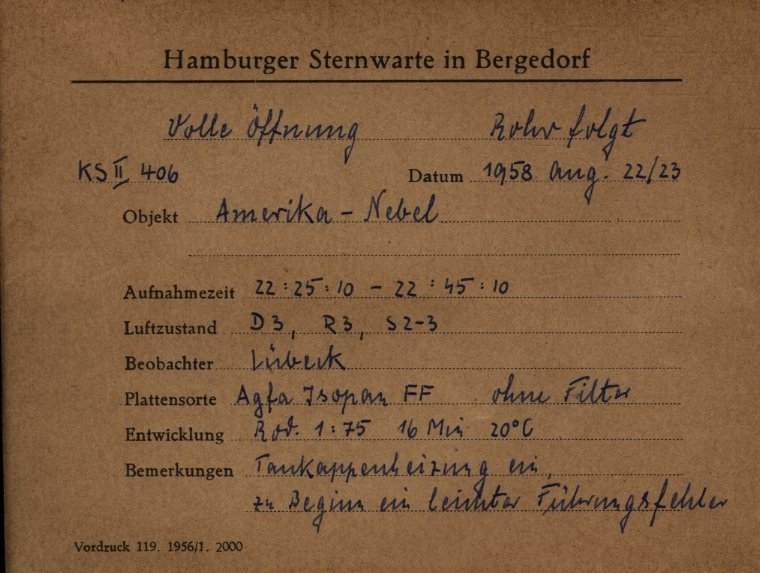 Hamburger Sternwarte in Bergedorf
Volle Öffnung Rohr folgt
KS II 406 Datum 1958 Aug. 22/23
Objekt Amerika - Nebel
Aufnahmezeit 22:25:10 - 22:45:10
Luftzustand D3, R3, S2-3
Beobachter Lübeck
Plattensorte Agfa Isopan FF ohne Filter
Entwicklung Rod. 1:75 16 Min 20°C
Bemerkungen Taukappenheizung ein,
zu Beginn ein leichter Führungsfehler
Vordruck 119. 1956/1. 2000